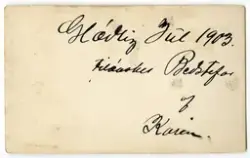 Glædelig Jul 1903.
tilönskes Bedstefar
af
Karin.